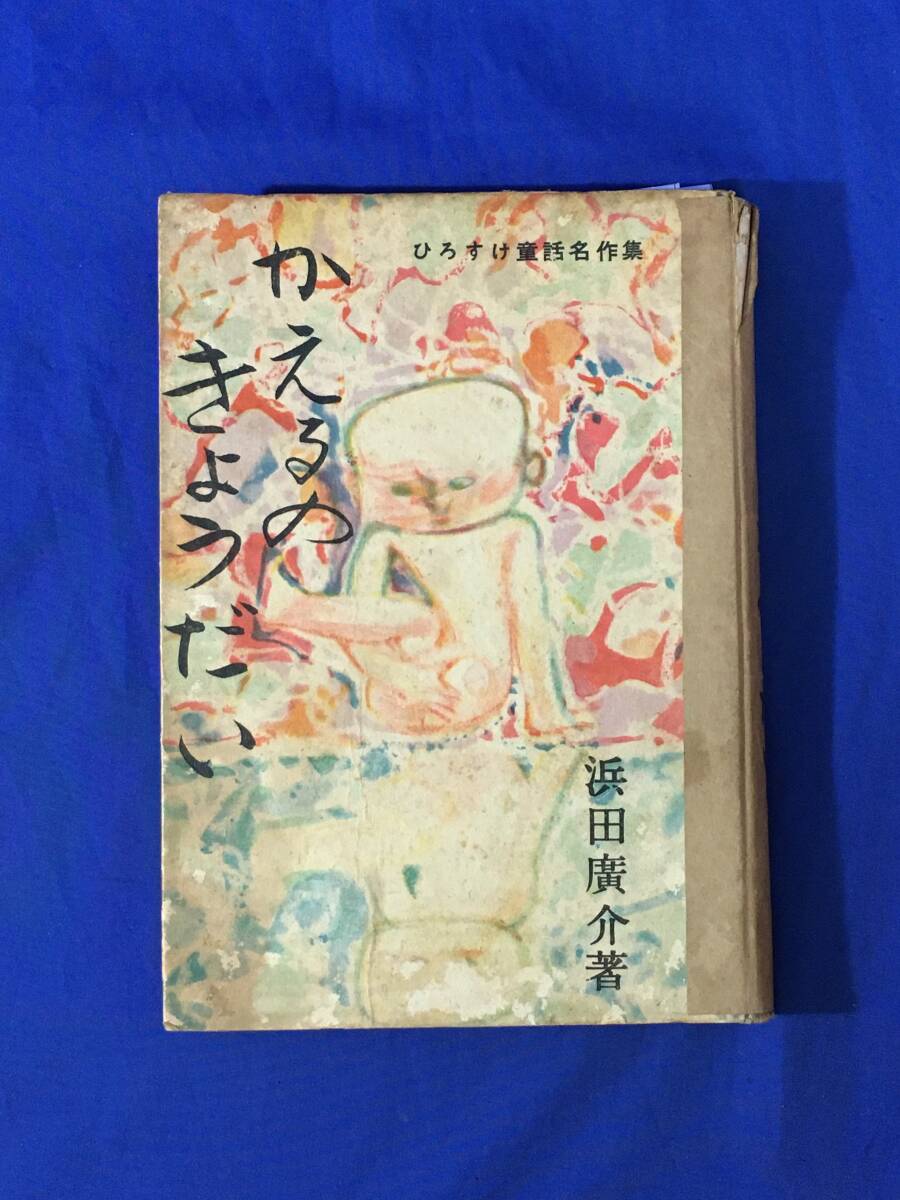 ひろすけ童話名作集
かえるの
きようだい
浜田廣介著